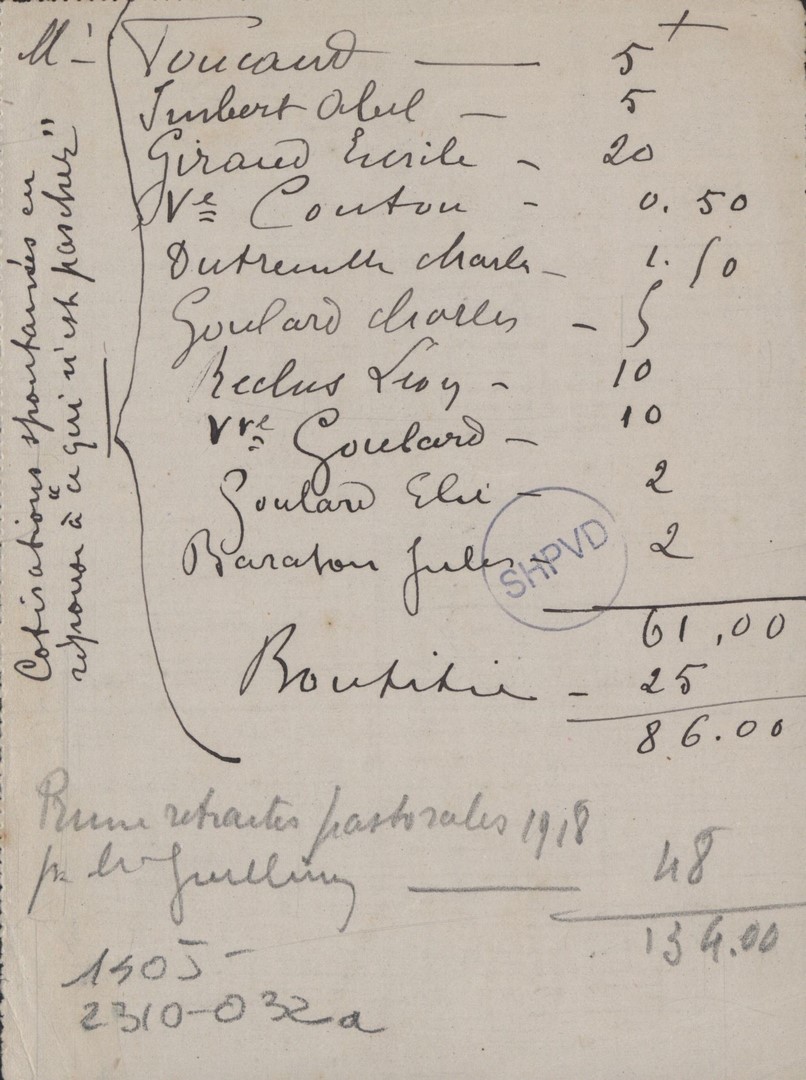 Mr Foucaud — 5 +
Imbert Abel — 5
Giraud Emile - 20
Ve Couton - 0.50
Dutreuilh Charles - 1.50
Goulard Charles - 5
Reclus Léon - 10
Vve Goulard - 10
Goulard Elie - 2
Baraton Jules - 2
61,00
Boutitie - 25
86.00
Cotisations spontanées en
réponse à "ce qui n'est pas chez"
SHPVD
retraites pastorales 1918
48
134.00
1505-
2310-032a